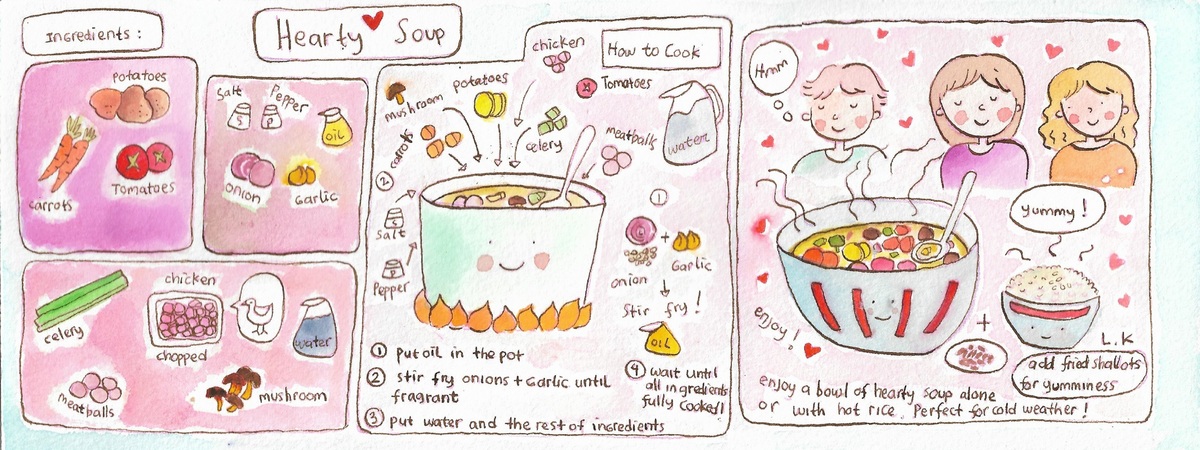 Ingredients :
Hearty Soup
potatoes
carrots
Tomatoes
Salt
Pepper
S
P
oil
onion
Garlic
celery
chicken
chopped
water
meatballs
mushroom
How to Cook
chicken
mushroom
potatoes
Tomatoes
carrots
celery
meatballs
water
2
Salt
S
Pepper
P
1
onion
+
Garlic
Stir fry !
OIL
1 put oil in the pot
2 stir fry onions + Garlic until
fragrant
3 put water and the rest of ingredients
4 wait until
all ingredients
fully cooked!
Hmm
yummy !
enjoy !
+
L.K
add fried shallots
for yumminess
enjoy a bowl of hearty soup alone
or with hot rice. Perfect for cold weather !